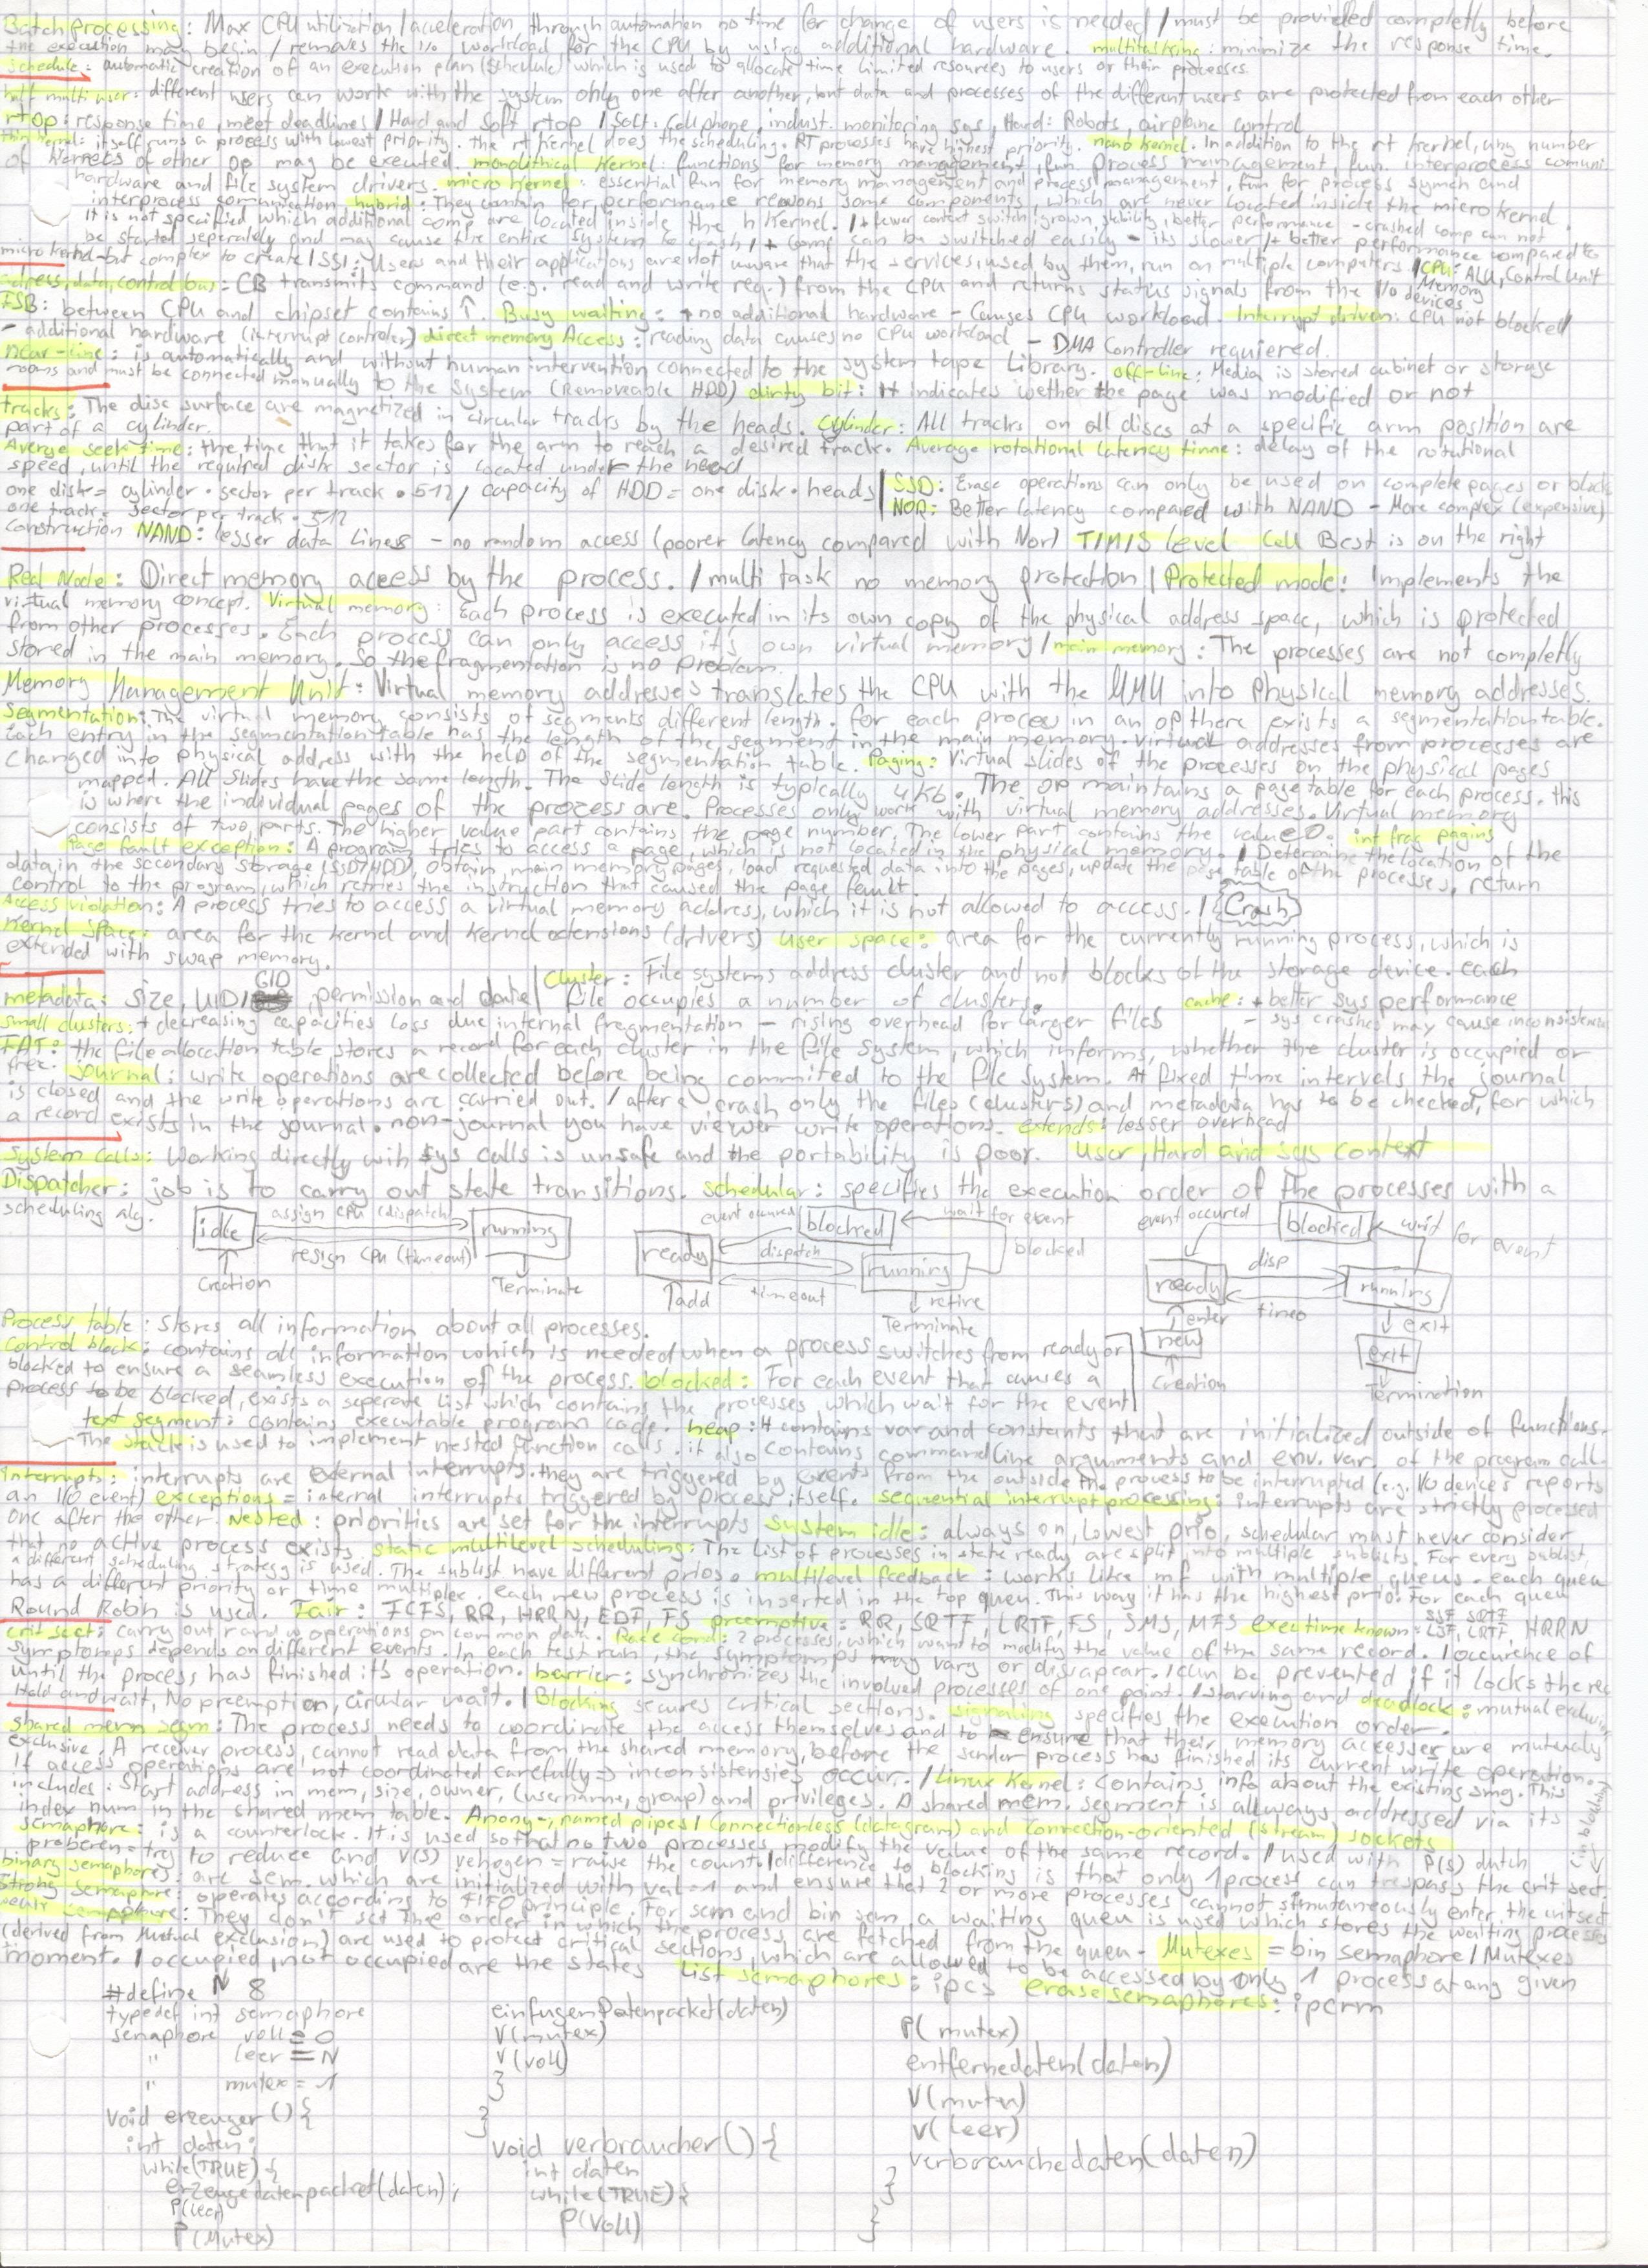 Batch Processing: Max CPU utilization / acceleration through automation no time for change of users is needed / must be provided completly before
the execution may begin / removes the I/O workload for the CPU by using additional hardware. multitasking: minimize the response time.
Schedule: automatic creation of an execution plan (schedule) which is used to allocate time limited resources to users or their processes.
half multi user: different users can work with the system only one after another, but data and processes of the different users are protected from each other
rtop: response time, meet deadlines / Hard and soft rtop / Soft: Cellphone, indust. monitoring sys, Hard: Robots, airplane control
thin kernel: itself runs a process with lowest priority. the rt kernel does the scheduling. RT processes have highest priority. nano kernel. In addition to the rt kernel, any number
of kernels of other op may be executed. monolithical kernel: functions for memory management, fun. process management, fun. interprocess comuni
hardware and file system drivers. micro kernel: essential fun for memory management and process management, fun for process synch and
interprocess comunication hybrid: They contain for performance reasons some components, which are never located inside the microkernel.
It is not specified which additional comp are located inside the h kernel. / + fewer context switch, grown stability, better performance - crashed comp can not
be started seperately and may cause the entire system to crash / + comp can be switched easily - its slower / + better performance compared to
micro kernel - but complex to create / SSI: Users and their applications are not unware that the services, used by them, run on multiple computers / CPU: ALU, Control Unit
Memory
adress, data, control bus: CB transmits command (e.g. read and write req.) from the CPU and returns status signals from the I/O devices
FSB: between CPU and chipset contains ↑. Busy waiting: + no additional hardware - Causes CPU workload. Interrupt driven: CPU not blocked /
- additional hardware (interrupt controler) direct memory Access: reading data causes no CPU workload - DMA Controller requiered.
near-line: is automatically and without human intervention connected to the system tape Library. off-line: Media is stored cabinet or storage
rooms and must be connected manually to the system (Removeable HDD) dirty bit: It indicates wether the page was modified or not
tracks: The disc surface are magnetized in circular tracks by the heads. Cylinder: All tracks on all discs at a specific arm position are
part of a cylinder.
Average seek time: the time that it takes for the arm to reach a desired track. Average rotational latency time: delay of the rotational
speed, until the required disk sector is located under the head
one disk = cylinder · sector per track · 512 / capacity of HDD = one disk · heads / SSD: Erase operations can only be used on complete pages or block
one track = sector per track · 512 NOR: Better latency compared with NAND - More complex (expensive)
construction NAND: lesser data Lines - no random access (poorer latency compared with Nor) T/M/S level Cell Best is on the right
Real Mode: Direct memory access by the process. / multi task no memory protection / Protected mode: Implements the
virtual memory concept. Virtual memory: Each process is executed in its own copy of the physical address space, which is protected
from other processes. Each process can only access it's own virtual memory / main memory: The processes are not completly
stored in the main memory. So the fragmentation is no problem.
Memory Management Unit: Virtual memory addresses translates the CPU with the MMU into physical memory addresses.
Segmentation: The virtual memory consists of segments different length. For each process in an op there exists a segmentation table.
Each entry in the segmentation table has the length of the segment in the main memory. virtual addresses from processes are
changed into physical address with the help of the segmentation table. Paging: Virtual slides of the processes on the physical pages
mapped. All slides have the same length. The slide length is typically 4 kb. The op maintains a page table for each process. this
is where the individual pages of the process are. Processes only work with virtual memory addresses. Virtual memory
consists of two parts. The higher value part contains the page number. The lower part contains the value 0. int frag paging
Page fault exception: A program tries to access a page, which is not located in the physical memory. / Determine the location of the
data in the secondary storage (SSD/HDD), obtain main memory pages, load requested data into the pages, update the page table of the processes, return
control to the program, which retries the instruction that caused the page fault.
Access violation: A process tries to access a virtual memory address, which it is not allowed to access. / Crash
Kernel Space: area for the kernel and kernel extensions (drivers) user space: area for the currently running process, which is
extended with swap memory.
Cluster: File systems address cluster and not blocks of the storage device. each
metadata: size, UID/ GID permission and date / file occupies a number of clusters. cache: + better sys performance
small clusters: + decreasing capacities loss due internal fragmentation - rising overhead for larger files - sys crashes may cause inconsistenc
FAT: the file allocation table stores a record for each cluster in the file system, which informs, whether the cluster is occupied or
free. Journal: write operations are collected before being commited to the file system. At fixed time intervals the journal
is closed and the write operations are carried out. / after a crash only the files (clusters) and metadata has to be checked, for which
a record exists in the journal. non-journal you have viewer write operations. extends: lesser overhead
System Calls: Working directly with sys calls is unsafe and the portability is poor. User, Hard and sys context
Dispatcher: job is to carry out state transitions. schedular: specifies the execution order of the processes with a
scheduling alg.
idle
assign CPU (dispatch)
running
resign CPU (timeout)
Creation
Terminate
event occured
blocked
wait for event
ready
dispatch
running
blocked
add
timeout
retire
Terminate
event occured
blocked
wait for event
ready
disp
running
timeo
enter
new
Creation
exit
exit
Termination
Process table: Stores all information about all processes.
Control block: contains all information which is needed when a process switches from ready or
blocked to ensure a seamless execution of the process. blocked: For each event that causes a
process to be blocked, exists a seperate list which contains the processes, which wait for the event
text segment: contains executable program code. heap: It contains var and constants that are initialized outside of functions.
The stack is used to implement nested function calls. it also contains commandline arguments and env. var. of the program call.
Interrupts: interrupts are external interrupts. they are triggered by events from the outside the process to be interrupted (e.g. I/O devices reports
an I/O event) exceptions = internal interrupts triggered by process itself. sequential interrupt processing: interrupts are strictly processed
one after the other. Nested: priorities are set for the interrupts system idle: always on, lowest prio, schedular must never consider
that no active process exists static multilevel scheduling: The list of processes in state ready are split into multiple sublists. For every sublist,
a different scheduling strategy is used. The sublist have different prios. multilevel feedback: works like mf with multiple queus. each queu
has a different priority or time multiplex. each new process is inserted in the top queu. This way it has the highest prio. For each queu
Round Robin is used. Fair: FCFS, RR, HRRN, EDF, FS preemptive: RR, SRTF, LRTF, FS, SMS, MFS exectime known: SJF, SRTF, LJF, LRTF, HRRN
crit sect: carry out r and w operations on common data. Race cond: 2 processes, which want to modify the value of the same record. / occurence of
symptomps depends on different events. In each test run, the symptomps may vary or dissapear. / can be prevented if it locks the rec
until the process has finished it's operation. barrier: synchronizes the involved processes of one point. / starving and deadlock: mutual exclusi
Hold and wait, No preemption, circular wait. / Blocking secures critical sections. signaling specifies the execution order.
shared mem segm: The process needs to coordinate the access themselves and to ensure that their memory accesser are mutualy
exclusive. A receiver process, cannot read data from the shared memory, before the sender process has finished its current write operation.
If access operations are not coordinated carefully => inconsistensies occur. / Linux Kernel: Contains info about the existing smg. This
includes: Start address in mem, size, owner, (username, group) and privileges. A shared mem. segment is allways addressed via its
index num in the shared mem table. Anony-, named pipes / Connectionless (datagram) and connection-oriented (stream) sockets
semaphore: is a counterlock. It is used so that no two processes modify the value of the same record. / used with P(s) dutch
proberen = try to reduce and V(s) vehogen = raise the count. / difference to blocking is that only 1 process can trespass the crit sect.
binary semaphores: are sem. which are initialized with val = 1 and ensure that 2 or more processes cannot simutaneously enter the critsect
strong semaphore: operates according to FIFO principle. For sem and bin sem a waiting queu is used which stores the waiting processes
weak semaphore: They don't set the order in which the process are fetched from the queu. Mutexes = bin semaphore / Mutexes
(derived from Mutual exclusion) are used to protect critical sections, which are allowed to be accessed by only 1 process at ang given
moment. / occupied, not occupied are the states List semaphores: ipcs erase semaphores: ipcrm
#define N 8
typedef int semaphore
semaphore voll = 0
" leer = N
" mutex = 1
void erzeuger () {
int daten;
while (TRUE) {
erzengedatenpacket(daten);
P(leer)
P(Mutex)
einfugenDatenpacket(daten)
V(mutex)
V(voll)
}
}
void verbraucher () {
int daten
while (TRUE) {
P(voll)
P(mutex)
entfernedaten(daten)
V(mutex)
V(leer)
verbrauchedaten(daten)
}
}